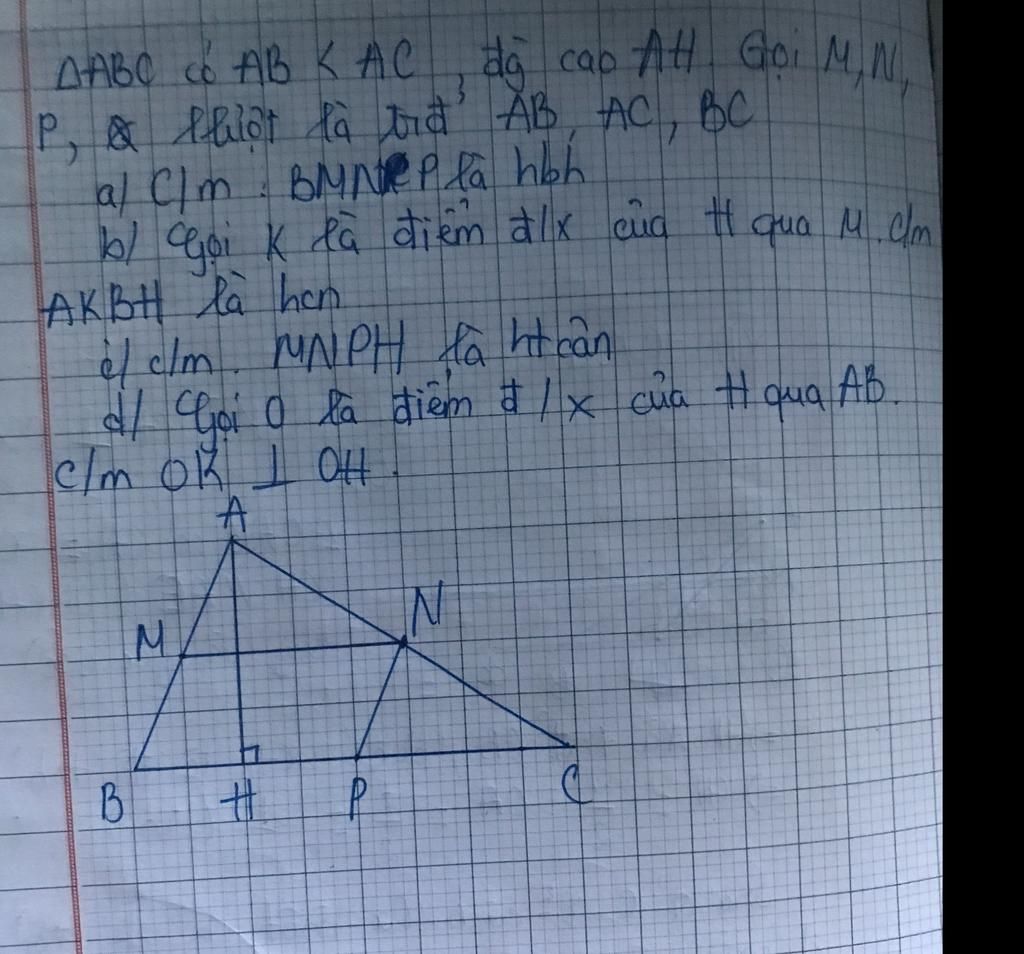 ΔABC có AB < AC, đg cao AH. Gọi M, N,
P, lluợt là trđ AB, AC, BC
a/ C/m : BMNP là hbh
b/ Gọi K là điểm đ/x của H qua M. c/m
AKBH là hcn
c/ c/m. MNPH là htcân
d/ Gọi O là điểm đ/x của H qua AB.
C/m OK ⊥ OH.
A
M N
B H P C